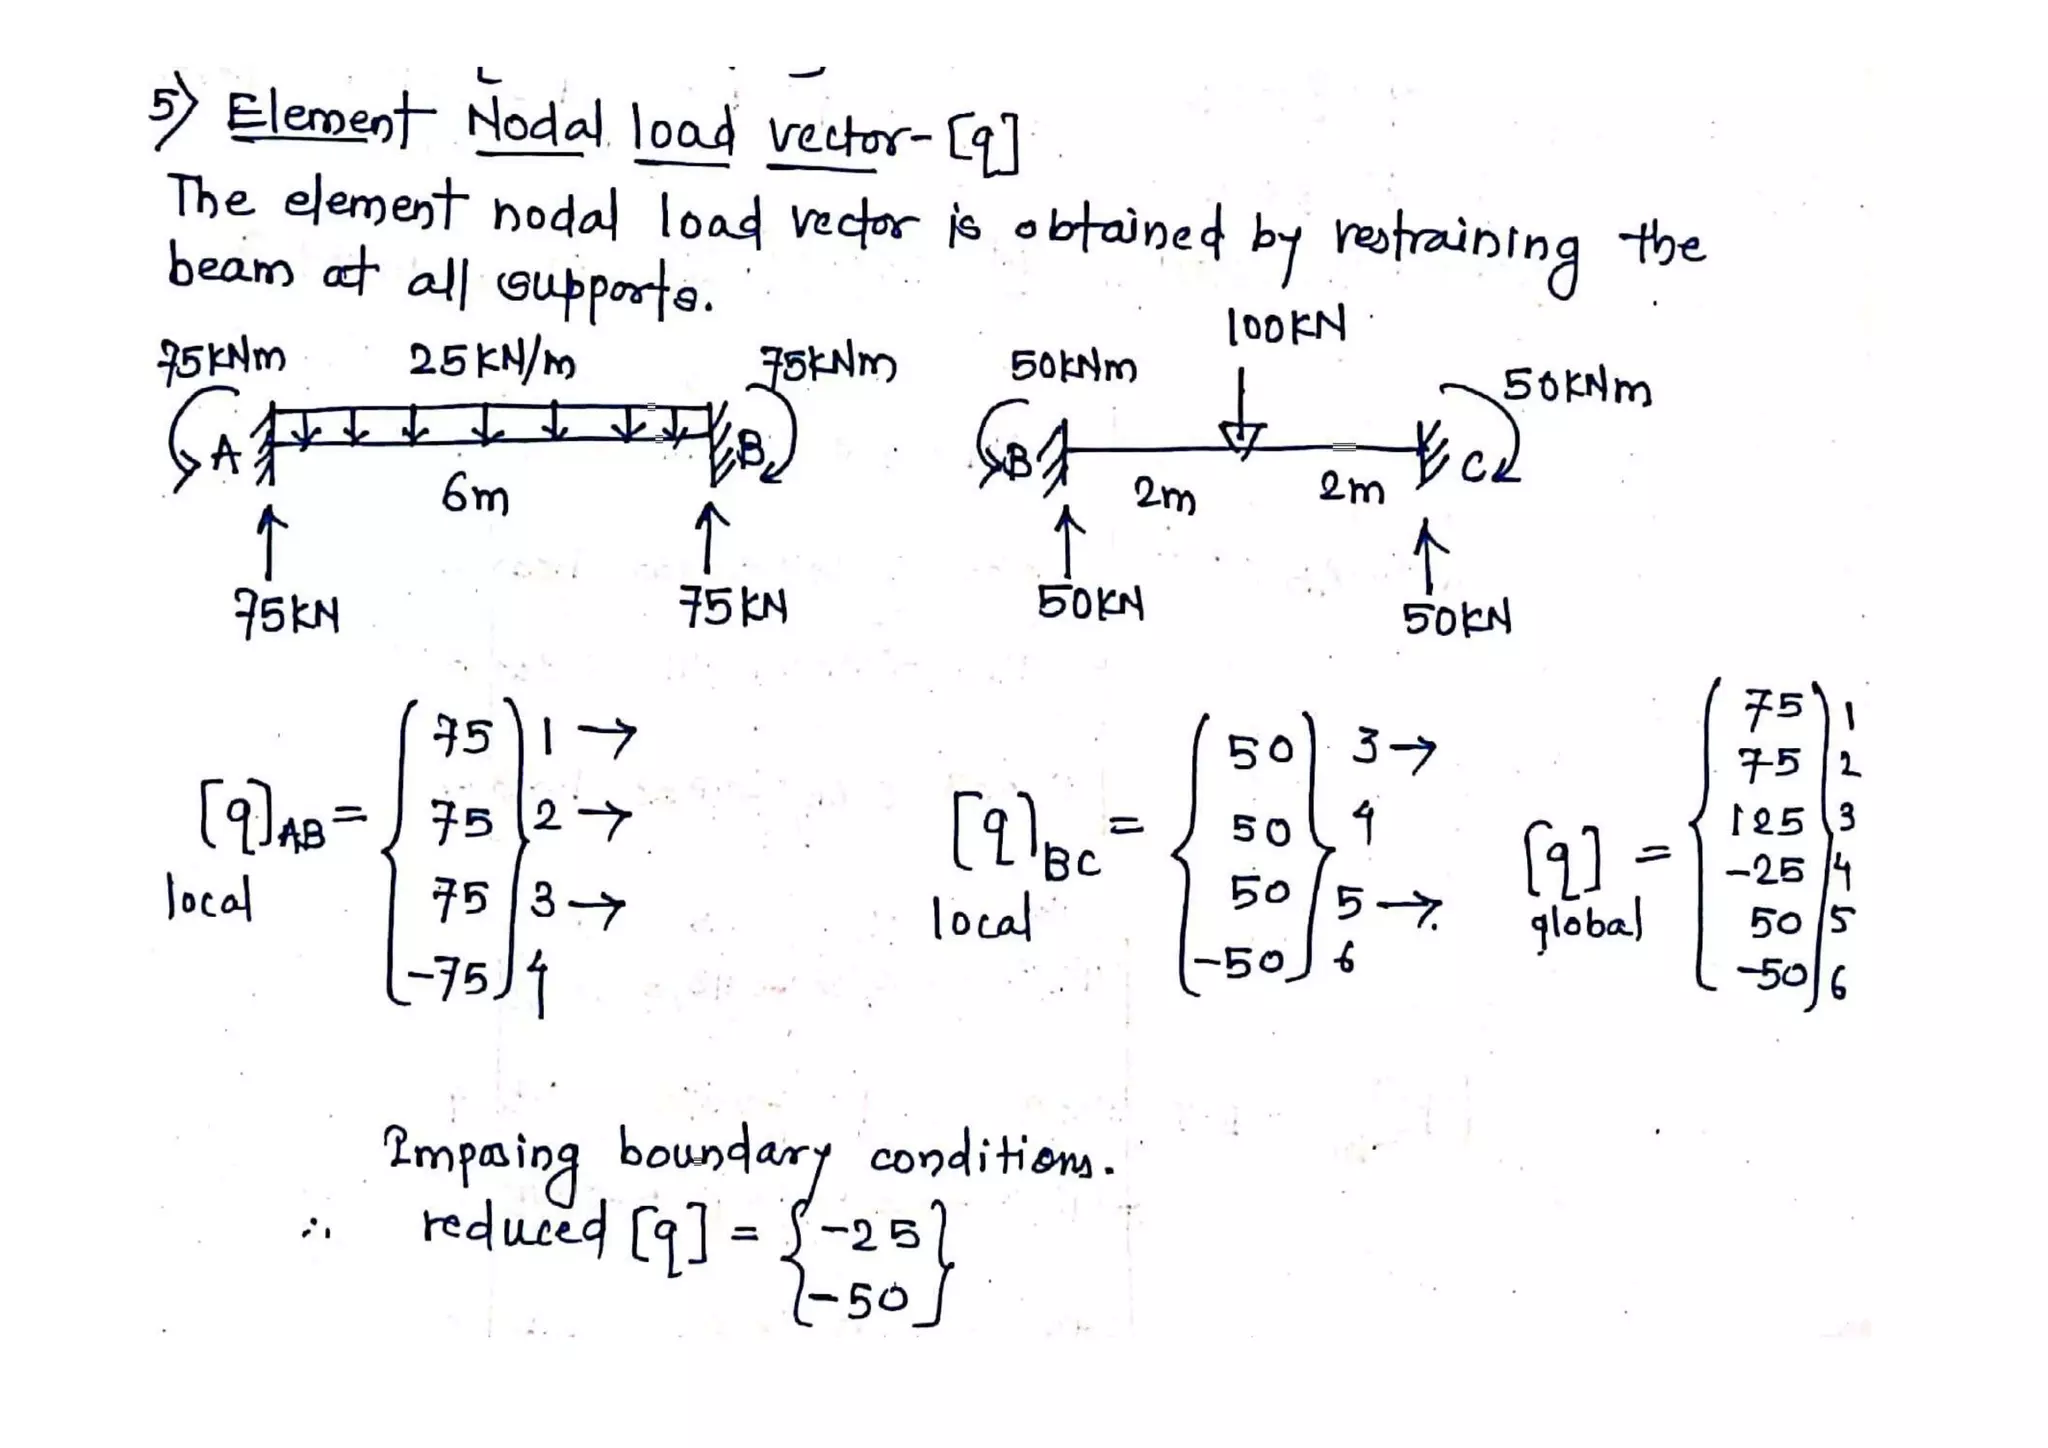 5) Element Nodal load vector-[q]
The element nodal load vector is obtained by restraining the
beam at all supports.
75kNm 25KN/m 75kNm
A B
6m
75KN 75KN
50kNm 100KN 50KNm
B C
2m 2m
50KN 50KN
[q]AB = local
75 1 →
75 2 →
75 3 →
-75 4
[q]BC = local
50 3 →
50 4
50 5 →.
-50 6
[q] = global
75 1
75 2
125 3
-25 4
50 5
-50 6
Imposing boundary conditions.
∴ reduced [q] = {-25
-50}